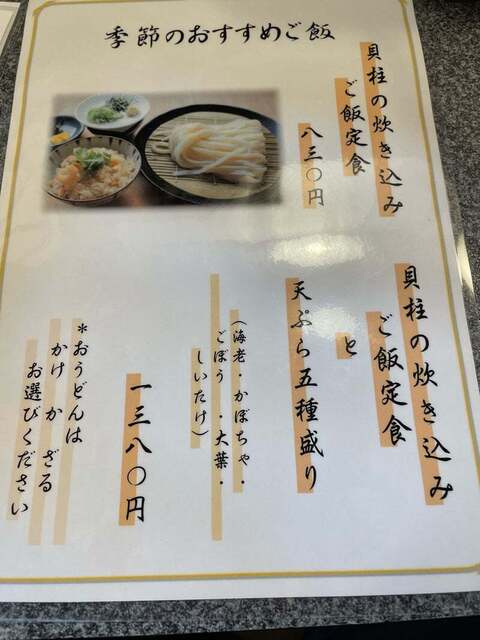 季節のおすすめご飯
貝柱の炊き込み
ご飯定食
八三〇円
貝柱の炊き込み
ご飯定食
と
天ぷら五種盛り
(海老・かぼちゃ・
ごぼう・大葉・
しいたけ)
一三八〇円
*おうどんは
かけ か ざる
お選びください